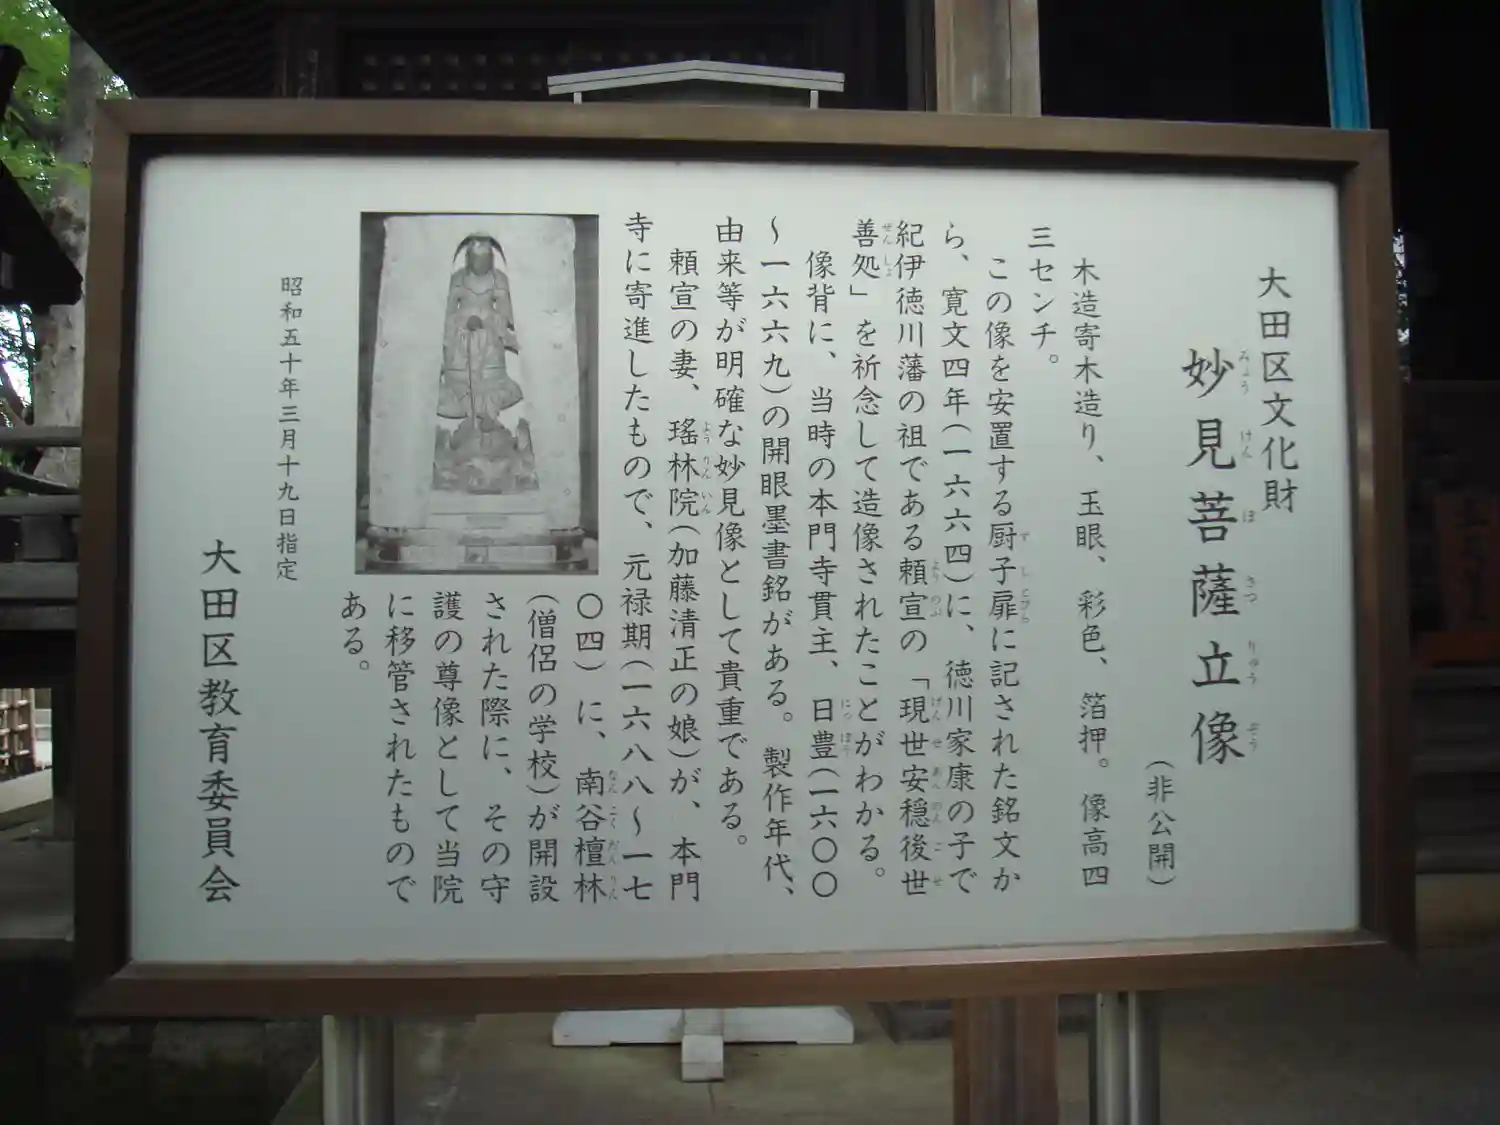 大田区文化財
妙見菩薩立像
（非公開）
木造寄木造り、玉眼、彩色、箔押。像高四
三センチ。
この像を安置する厨子扉に記された銘文か
ら、寛文四年（一六六四）に、徳川家康の子で
紀伊徳川藩の祖である頼宣の「現世安穏後世
善処」を祈念して造像されたことがわかる。
像背に、当時の本門寺貫主、日豊（一六〇〇
～一六六九）の開眼墨書銘がある。製作年代、
由来等が明確な妙見像として貴重である。
頼宣の妻、瑤林院（加藤清正の娘）が、本門
寺に寄進したもので、元禄期（一六八八～一七
〇四）に、南谷檀林
（僧侶の学校）が開設
された際に、その守
護の尊像として当院
に移管されたもので
ある。
昭和五十年三月十九日指定
大田区教育委員会